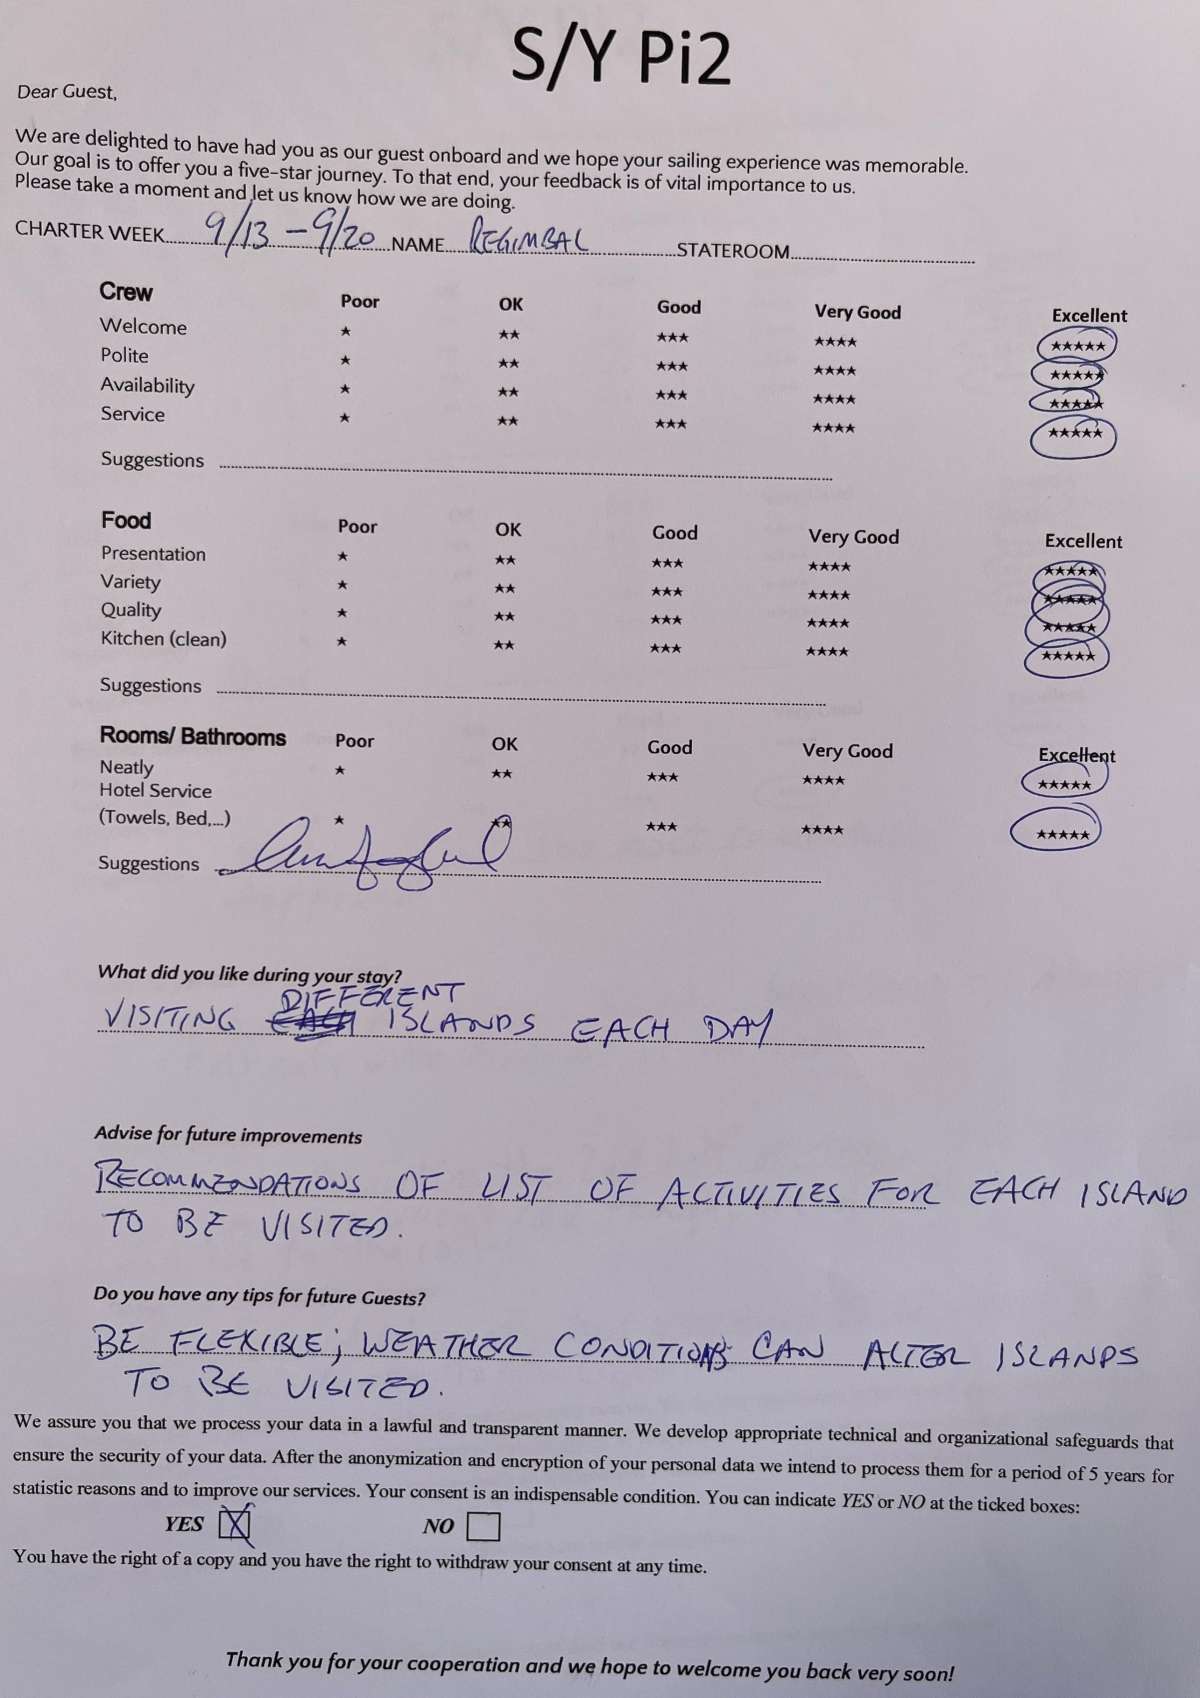 S/Y Pi2
Dear Guest,
We are delighted to have had you as our guest onboard and we hope your sailing experience was memorable.
Our goal is to offer you a five-star journey. To that end, your feedback is of vital importance to us.
Please take a moment and let us know how we are doing.
CHARTER WEEK 9/13 - 9/20 NAME REGIMBAL STATEROOM
Crew Poor OK Good Very Good Excellent
Welcome ★ ★★ ★★★ ★★★★ ★★★★★
Polite ★ ★★ ★★★ ★★★★ ★★★★★
Availability ★ ★★ ★★★ ★★★★ ★★★★★
Service ★ ★★ ★★★ ★★★★ ★★★★★
Suggestions
Food Poor OK Good Very Good Excellent
Presentation ★ ★★ ★★★ ★★★★ ★★★★★
Variety ★ ★★ ★★★ ★★★★ ★★★★★
Quality ★ ★★ ★★★ ★★★★ ★★★★★
Kitchen (clean) ★ ★★ ★★★ ★★★★ ★★★★★
Suggestions
Rooms/ Bathrooms Poor OK Good Very Good Excellent
Neatly ★ ★★ ★★★ ★★★★ ★★★★★
Hotel Service
(Towels, Bed,...) ★ ★★ ★★★ ★★★★ ★★★★★
Suggestions
What did you like during your stay?
VISITING DIFFERENT ISLANDS EACH DAY
Advise for future improvements
RECOMMENDATIONS OF LIST OF ACTIVITIES FOR EACH ISLAND
TO BE VISITED.
Do you have any tips for future Guests?
BE FLEXIBLE; WEATHER CONDITIONS CAN ALTER ISLANDS
TO BE VISITED.
We assure you that we process your data in a lawful and transparent manner. We develop appropriate technical and organizational safeguards that
ensure the security of your data. After the anonymization and encryption of your personal data we intend to process them for a period of 5 years for
statistic reasons and to improve our services. Your consent is an indispensable condition. You can indicate YES or NO at the ticked boxes:
YES ☒ NO ☐
You have the right of a copy and you have the right to withdraw your consent at any time.
Thank you for your cooperation and we hope to welcome you back very soon!